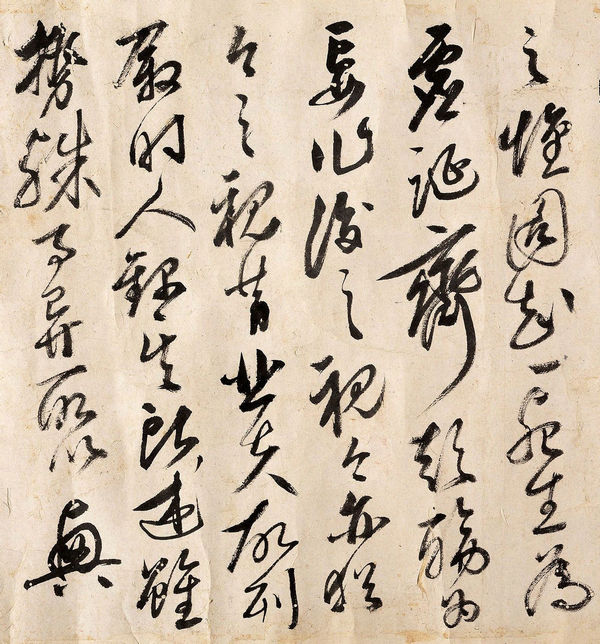 之懷固知一死生為
虛誕齊彭殤為
妄作後之視今亦猶
今之視昔悲夫故列
敘時人錄其所述雖
殊事異所以興